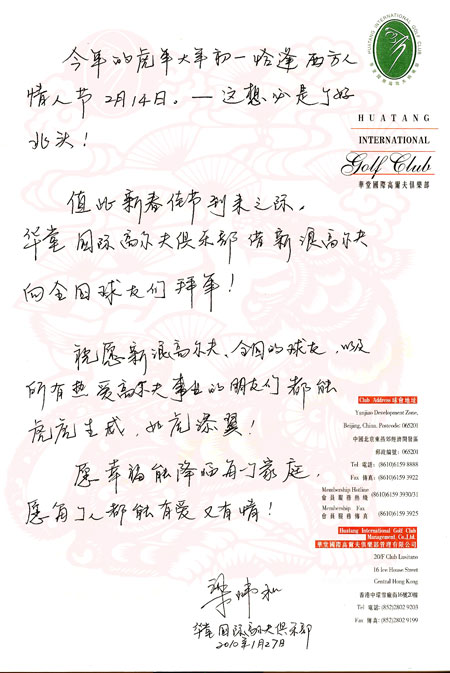 今年的虎年大年初一恰逢西方人
情人节2月14日。—这想必是个好
兆头！
值此新春佳节到来之际，
华堂国际高尔夫俱乐部借新浪高尔夫
向全国球友们拜年！
祝愿新浪高尔夫、全国的球友、以及
所有热爱高尔夫事业的朋友们都能
虎虎生威，如虎添翼！
愿幸福能降临每个家庭，
愿每个人都能有爱又有情！
华堂国际高尔夫俱乐部
2010年1月27日
HUATANG INTERNATIONAL GOLF CLUB
HUATANG
INTERNATIONAL
Golf Club
華堂國際高爾夫俱樂部
Club Address 球會地址
Yanjiao Development Zone,
Beijing, China. Postcode: 065201
中國北京東燕郊經濟開發區
郵政編號：065201
Tel 電話: (8610)6159 8888
Fax 傳真: (8610)6159 3922
Membership Hotline
會員服務熱綫 (8610)6159 3930/31
Membership Fax
會員服務傳真 (8610)6159 3925
Huatang International Golf Club
Management Co.,Ltd.
華堂國際高爾夫俱樂部管理有限公司
20/F Club Lusitano
16 Ice House Street
Central Hong Kong
香港中環雪廠街16號20樓
Tel 電話: (852)2802 9203
Fax 傳真: (852)2802 9199